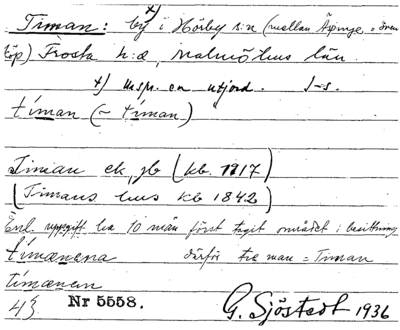 x)
Timan: by i Hörby s:n (mellan Äspinge o. Sven
töp) Frosta h:d, Malmöhus län.
x) ursp. en utjord. J-s.
timan (~ timan)
Timan ek, jb (kb. 1917)
(Timans hus kb 1842)
Enl. uppgift ha 10 män först tagit området i besittning
timanena därför tie man = Timan
timanen
4/3 Nr 5558. G. Sjöstedt 1936